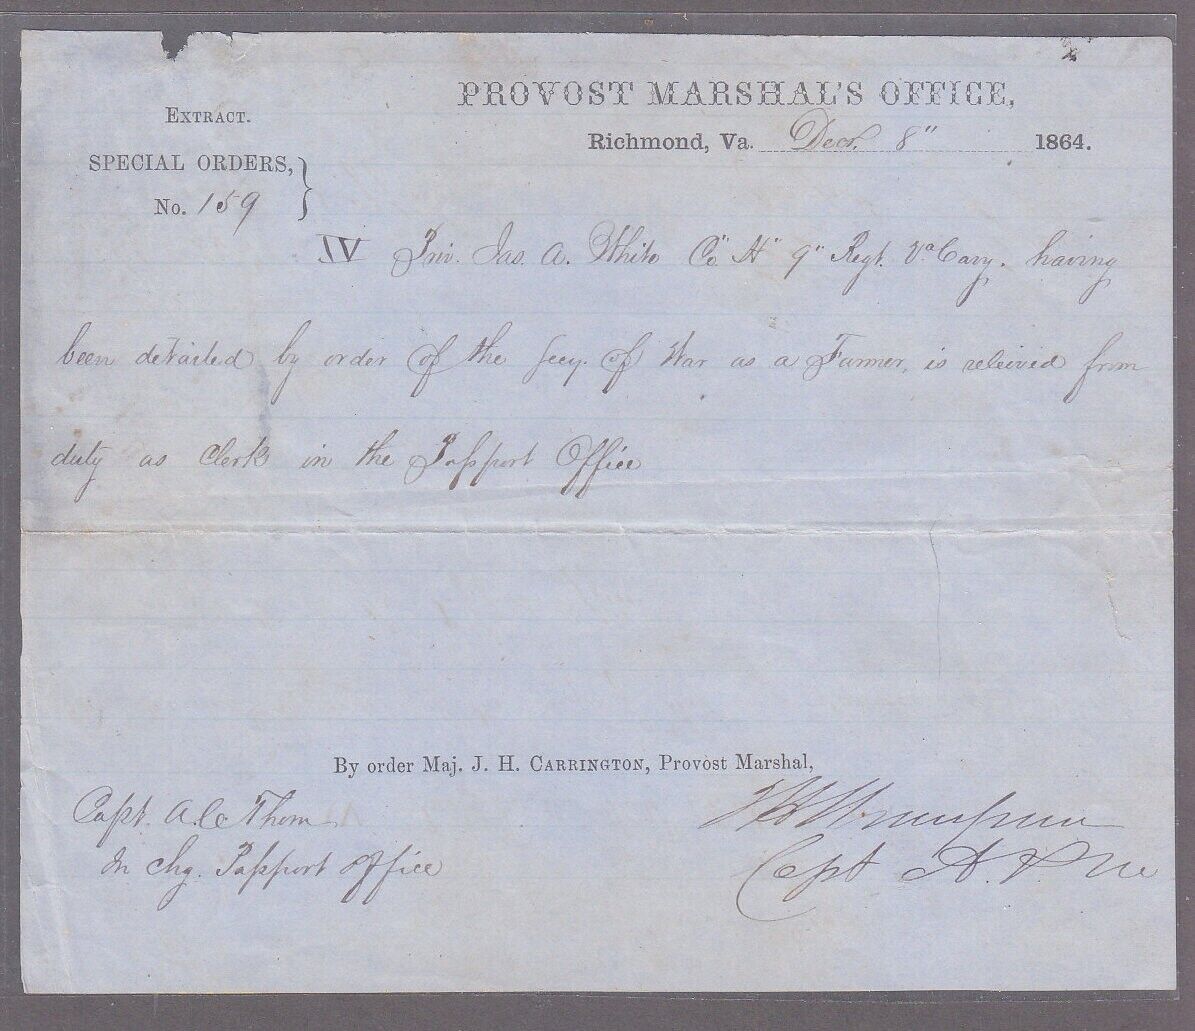 PROVOST MARSHAL'S OFFICE,
Richmond, Va. Decr. 8" 1864.
EXTRACT.
SPECIAL ORDERS,
No. 159
IV Priv. Jas. A. White Co "H" 9" Regt. Va Cavy. having
been detailed by order of the Secy. of War as a Farmer, is releived from
duty as Clerk in the Passport Office
By order Maj. J. H. CARRINGTON, Provost Marshal,
Capt. A. C Thom
In chg. Passport Office
Capt A. P. M